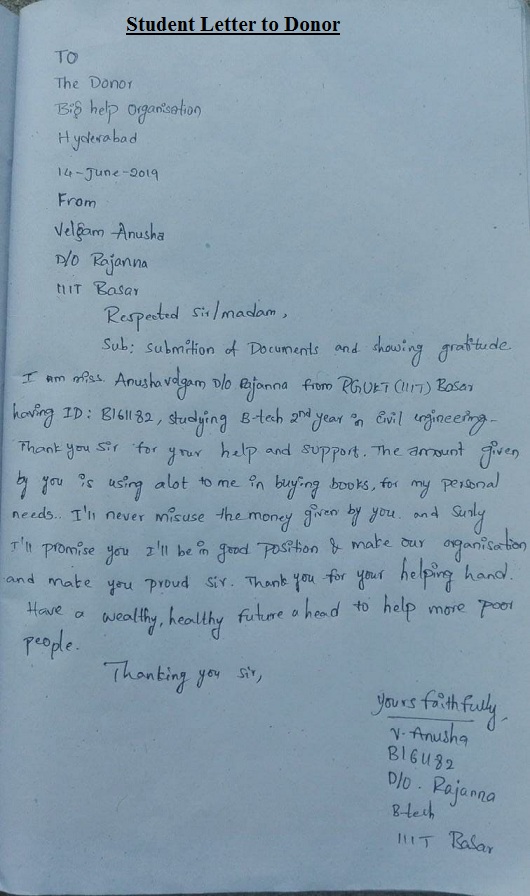 Student Letter to Donor
TO
The Donor
Big help Organisation
Hyderabad
14-June-2019
From
Velgam Anusha
D/O Rajanna
IIIT Basar
Respected Sir/madam,
Sub: submition of Documents and showing gratitude.
I am miss. Anusha velgam D/o Rajanna from RGUKT (IIIT) Basar
having ID: B161182, studying B-tech 2nd year in Civil engineering.
Thank you sir for your help and support. The amount given
by you is using alot to me in buying books, for my personal
needs.. I'll never misuse the money given by you. and Surly
I'll promise you I'll be in good position & make our organisation
and make you proud sir. Thank you for your helping hand.
Have a wealthy, healthy future a head to help more poor
people.
Thanking you sir,
yours faithfully,
V. Anusha
B161182
D/O. Rajanna
B-tech
IIIT Basar